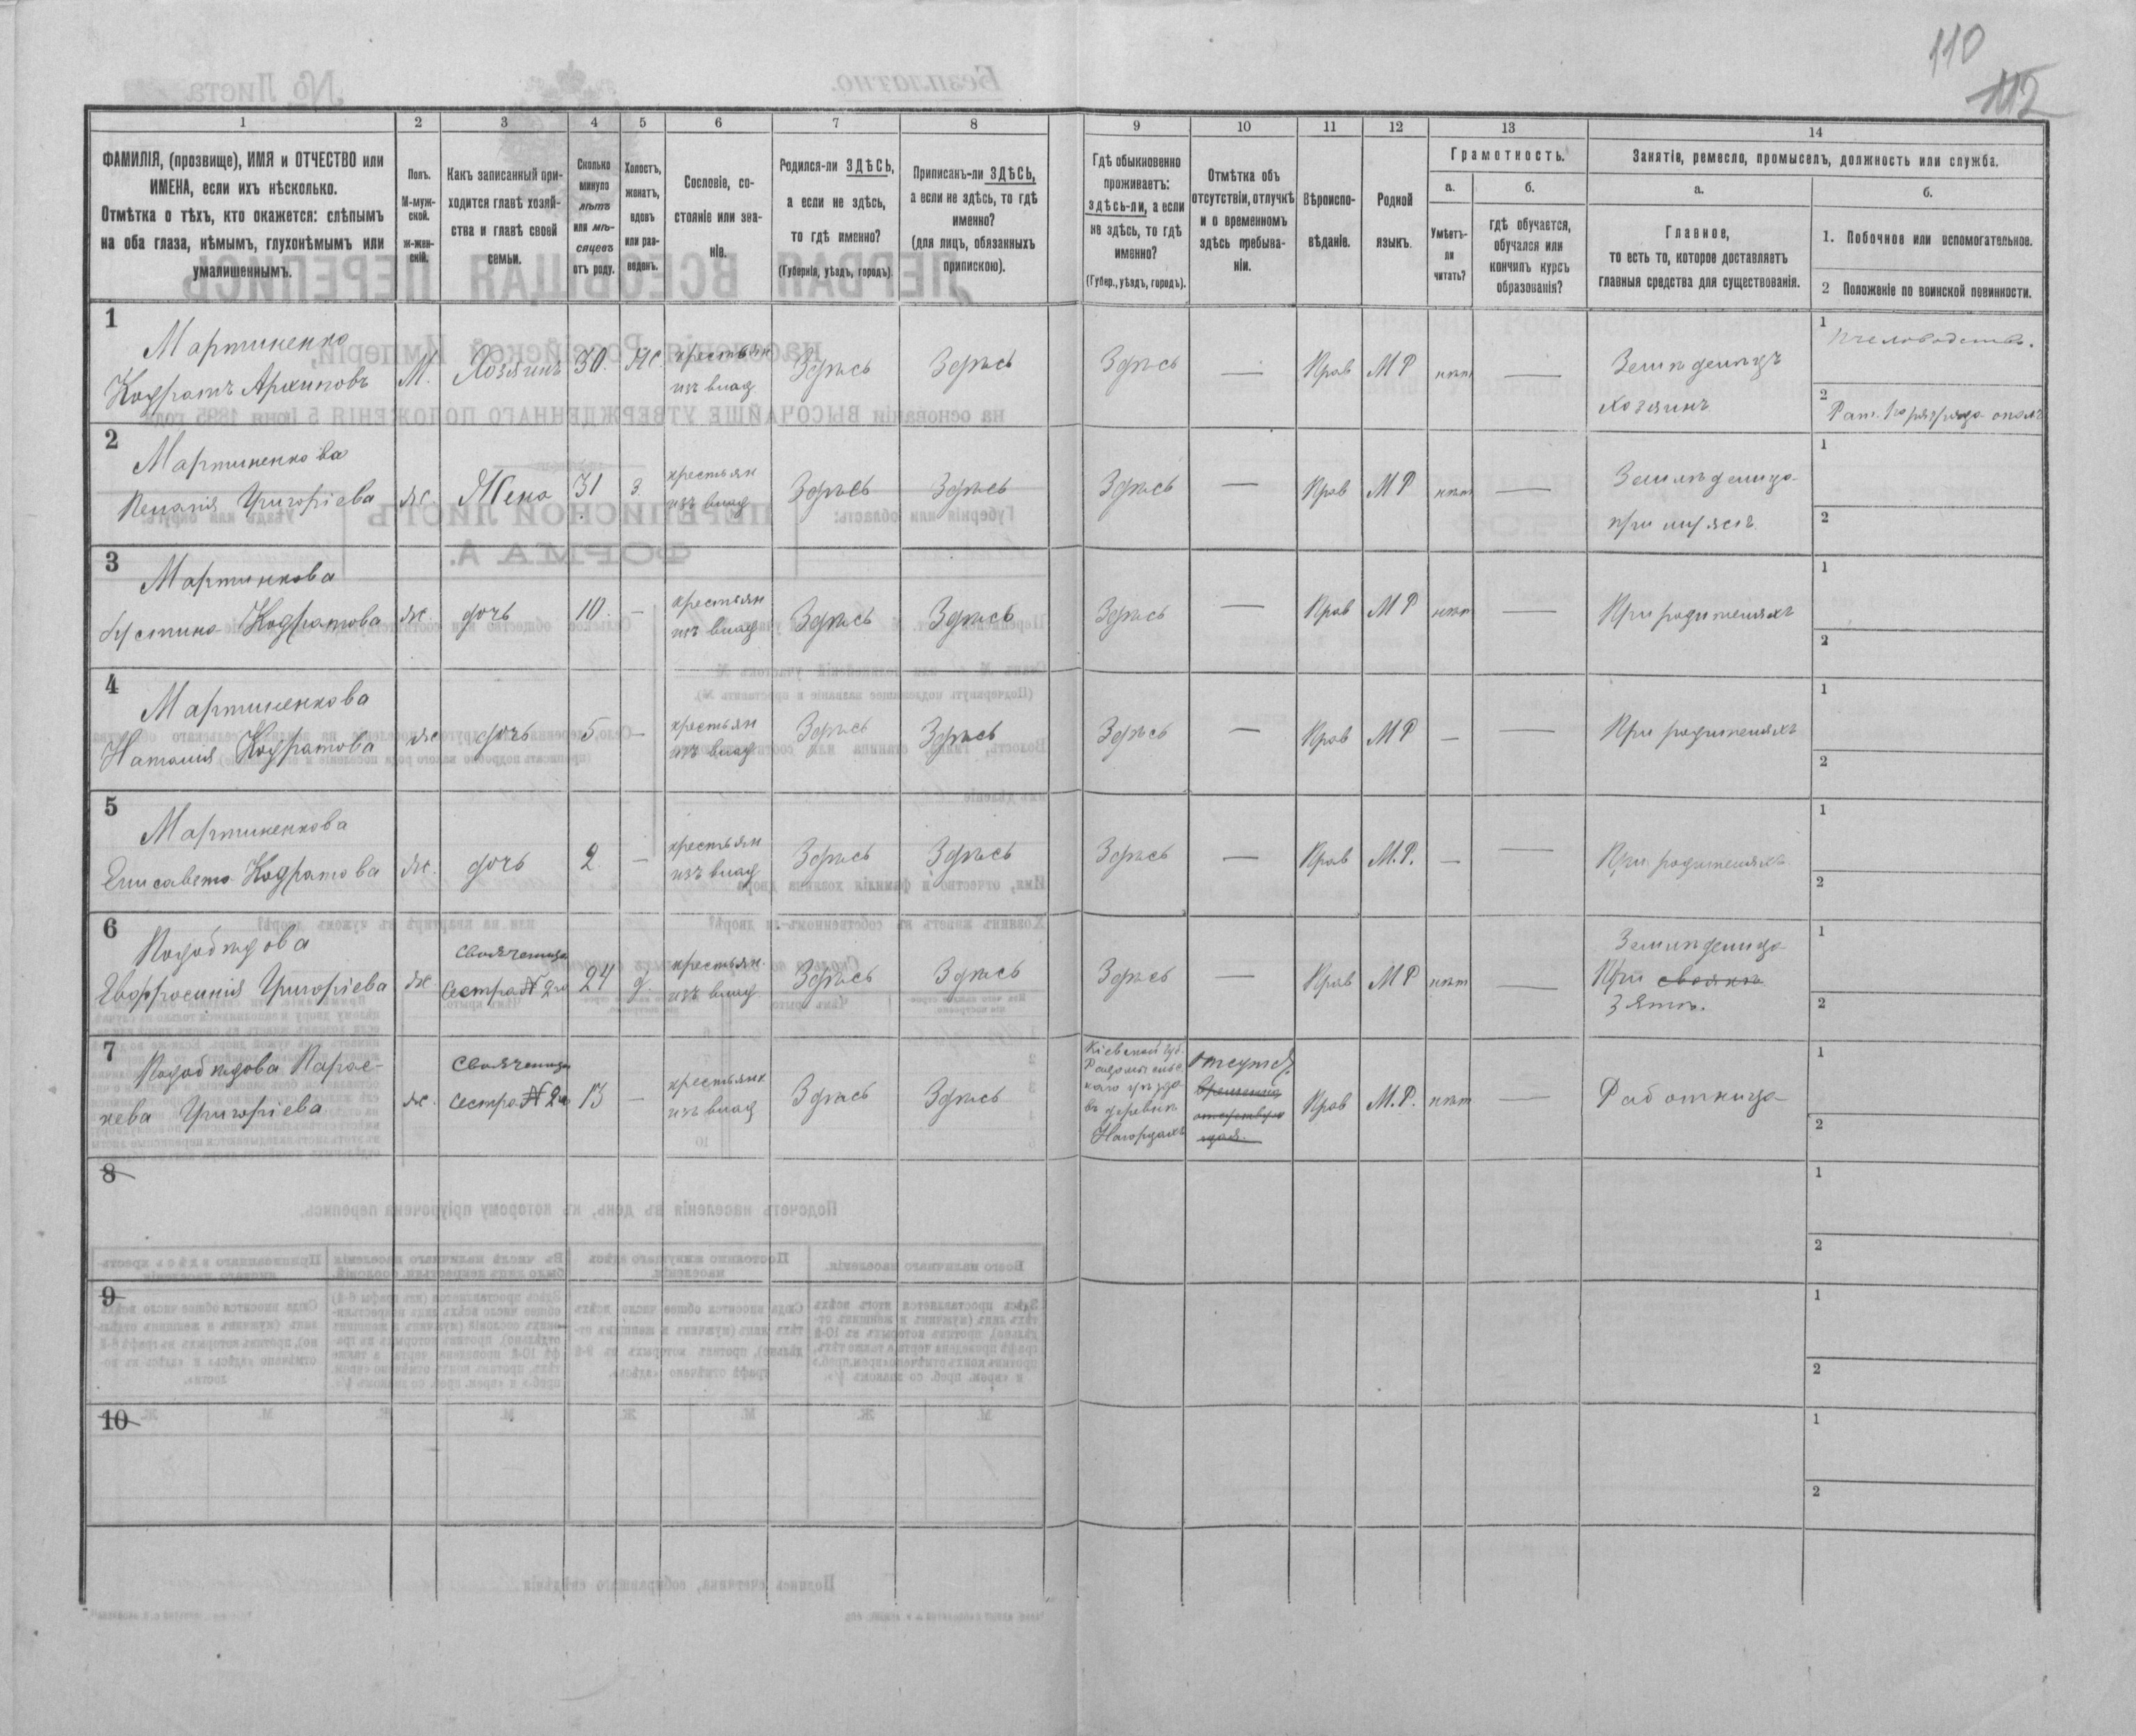 110
112
1
2
3
4
5
6
7
8
9
10
11
12
13
14
ФАМИЛІЯ, (прозвище), ИМЯ и ОТЧЕСТВО или
ИМЕНА, если ихъ нѣсколько.
Отмѣтка о тѣхъ, кто окажется: слѣпымъ
на оба глаза, нѣмымъ, глухонѣмымъ или
умалишеннымъ.
Полъ.
М-муж-
ской.
ж-жен-
скій.
Какъ записанный при-
ходится главѣ хозяй-
ства и главѣ своей
семьи.
Сколько
минуло
лѣтъ
или мѣ-
сяцевъ
отъ роду.
Холостъ,
женатъ,
вдовъ
или раз-
веденъ.
Сословіе, со-
стояніе или зва-
ніе.
Родился-ли ЗДѢСЬ,
а если не здѣсь,
то гдѣ именно?
(Губернія, уѣздъ, городъ).
Приписанъ-ли ЗДѢСЬ,
а если не здѣсь, то гдѣ
именно?
(для лицъ, обязанныхъ
припискою).
Гдѣ обыкновенно
проживаетъ:
здѣсь-ли, а если
не здѣсь, то гдѣ
именно?
(Губер., уѣздъ, городъ).
Отмѣтка объ
отсутствіи, отлучкѣ
и о временномъ
здѣсь пребыва-
ніи.
Вѣроиспо-
вѣданіе.
Родной
языкъ.
Грамотность.
а.
б.
Умѣетъ-
ли
читать?
гдѣ обучается,
обучался или
кончилъ курсъ
образованія?
Занятіе, ремесло, промыселъ, должность или служба.
а.
б.
Главное,
то есть то, которое доставляетъ
главныя средства для существованія.
1. Побочное или вспомогательное.
2 Положеніе по воинской повинности.
1
Мартиненко
Кодратъ Архиповъ
М.
Хозяинъ
30.
Ж.
крестьян
изъ влад
Здѣсь
Здѣсь
Здѣсь
—
Прав
МР
нѣт
—
Землѣделецъ
хозяинъ
1 Пчеловодство.
2 Рат. 1го разряда опол
2
Мартиненкова
Пелагія Григоріева
Ж.
Жена
31
З.
крестьян
изъ влад
Здѣсь
Здѣсь
Здѣсь
—
Прав
МР
нѣт
—
Землѣделица
при мужѣ
1
2
3
Мартинкова
Устина Кодратова
Ж.
дочь
10.
—
крестьян
изъ влад
Здѣсь
Здѣсь
Здѣсь
—
Прав
МР
нѣт
—
При родителяхъ
1
2
4
Мартиненкова
Наталія Кодратова
Ж
дочь
5
—
крестьян
изъ влад
Здѣсь
Здѣсь
Здѣсь
—
Прав
МР
—
—
При родителяхъ
1
2
5
Мартиненкова
Елисавета Кодратова
Ж.
дочь
2
—
крестьян
изъ влад
Здѣсь
Здѣсь
Здѣсь
—
Прав
М.Р.
—
—
При родителяхъ
1
2
6
Подобѣдова
Евфросинія Григоріева
Ж
Своячениця
Сестра N 2го
24
д.
крестьян.
изъ влад
Здѣсь
Здѣсь
Здѣсь
—
Прав
МР
нѣт
—
Землѣделица
При своякѣ
зятѣ.
1
2
7
Подобѣдова Парас-
кева Григоріева
Ж.
Своячениця
Сестра N 2го
13
—
крестьянк
изъ влад
Здѣсь
Здѣсь
Кіевской губ.
Радомысльс
каго уѣзда
въ деревнѣ
отсутст.
временно
отсутству
ющая
Прав
М.Р.
нѣт
—
Работница
1
2
8
1
2
9
1
2
10
1
2